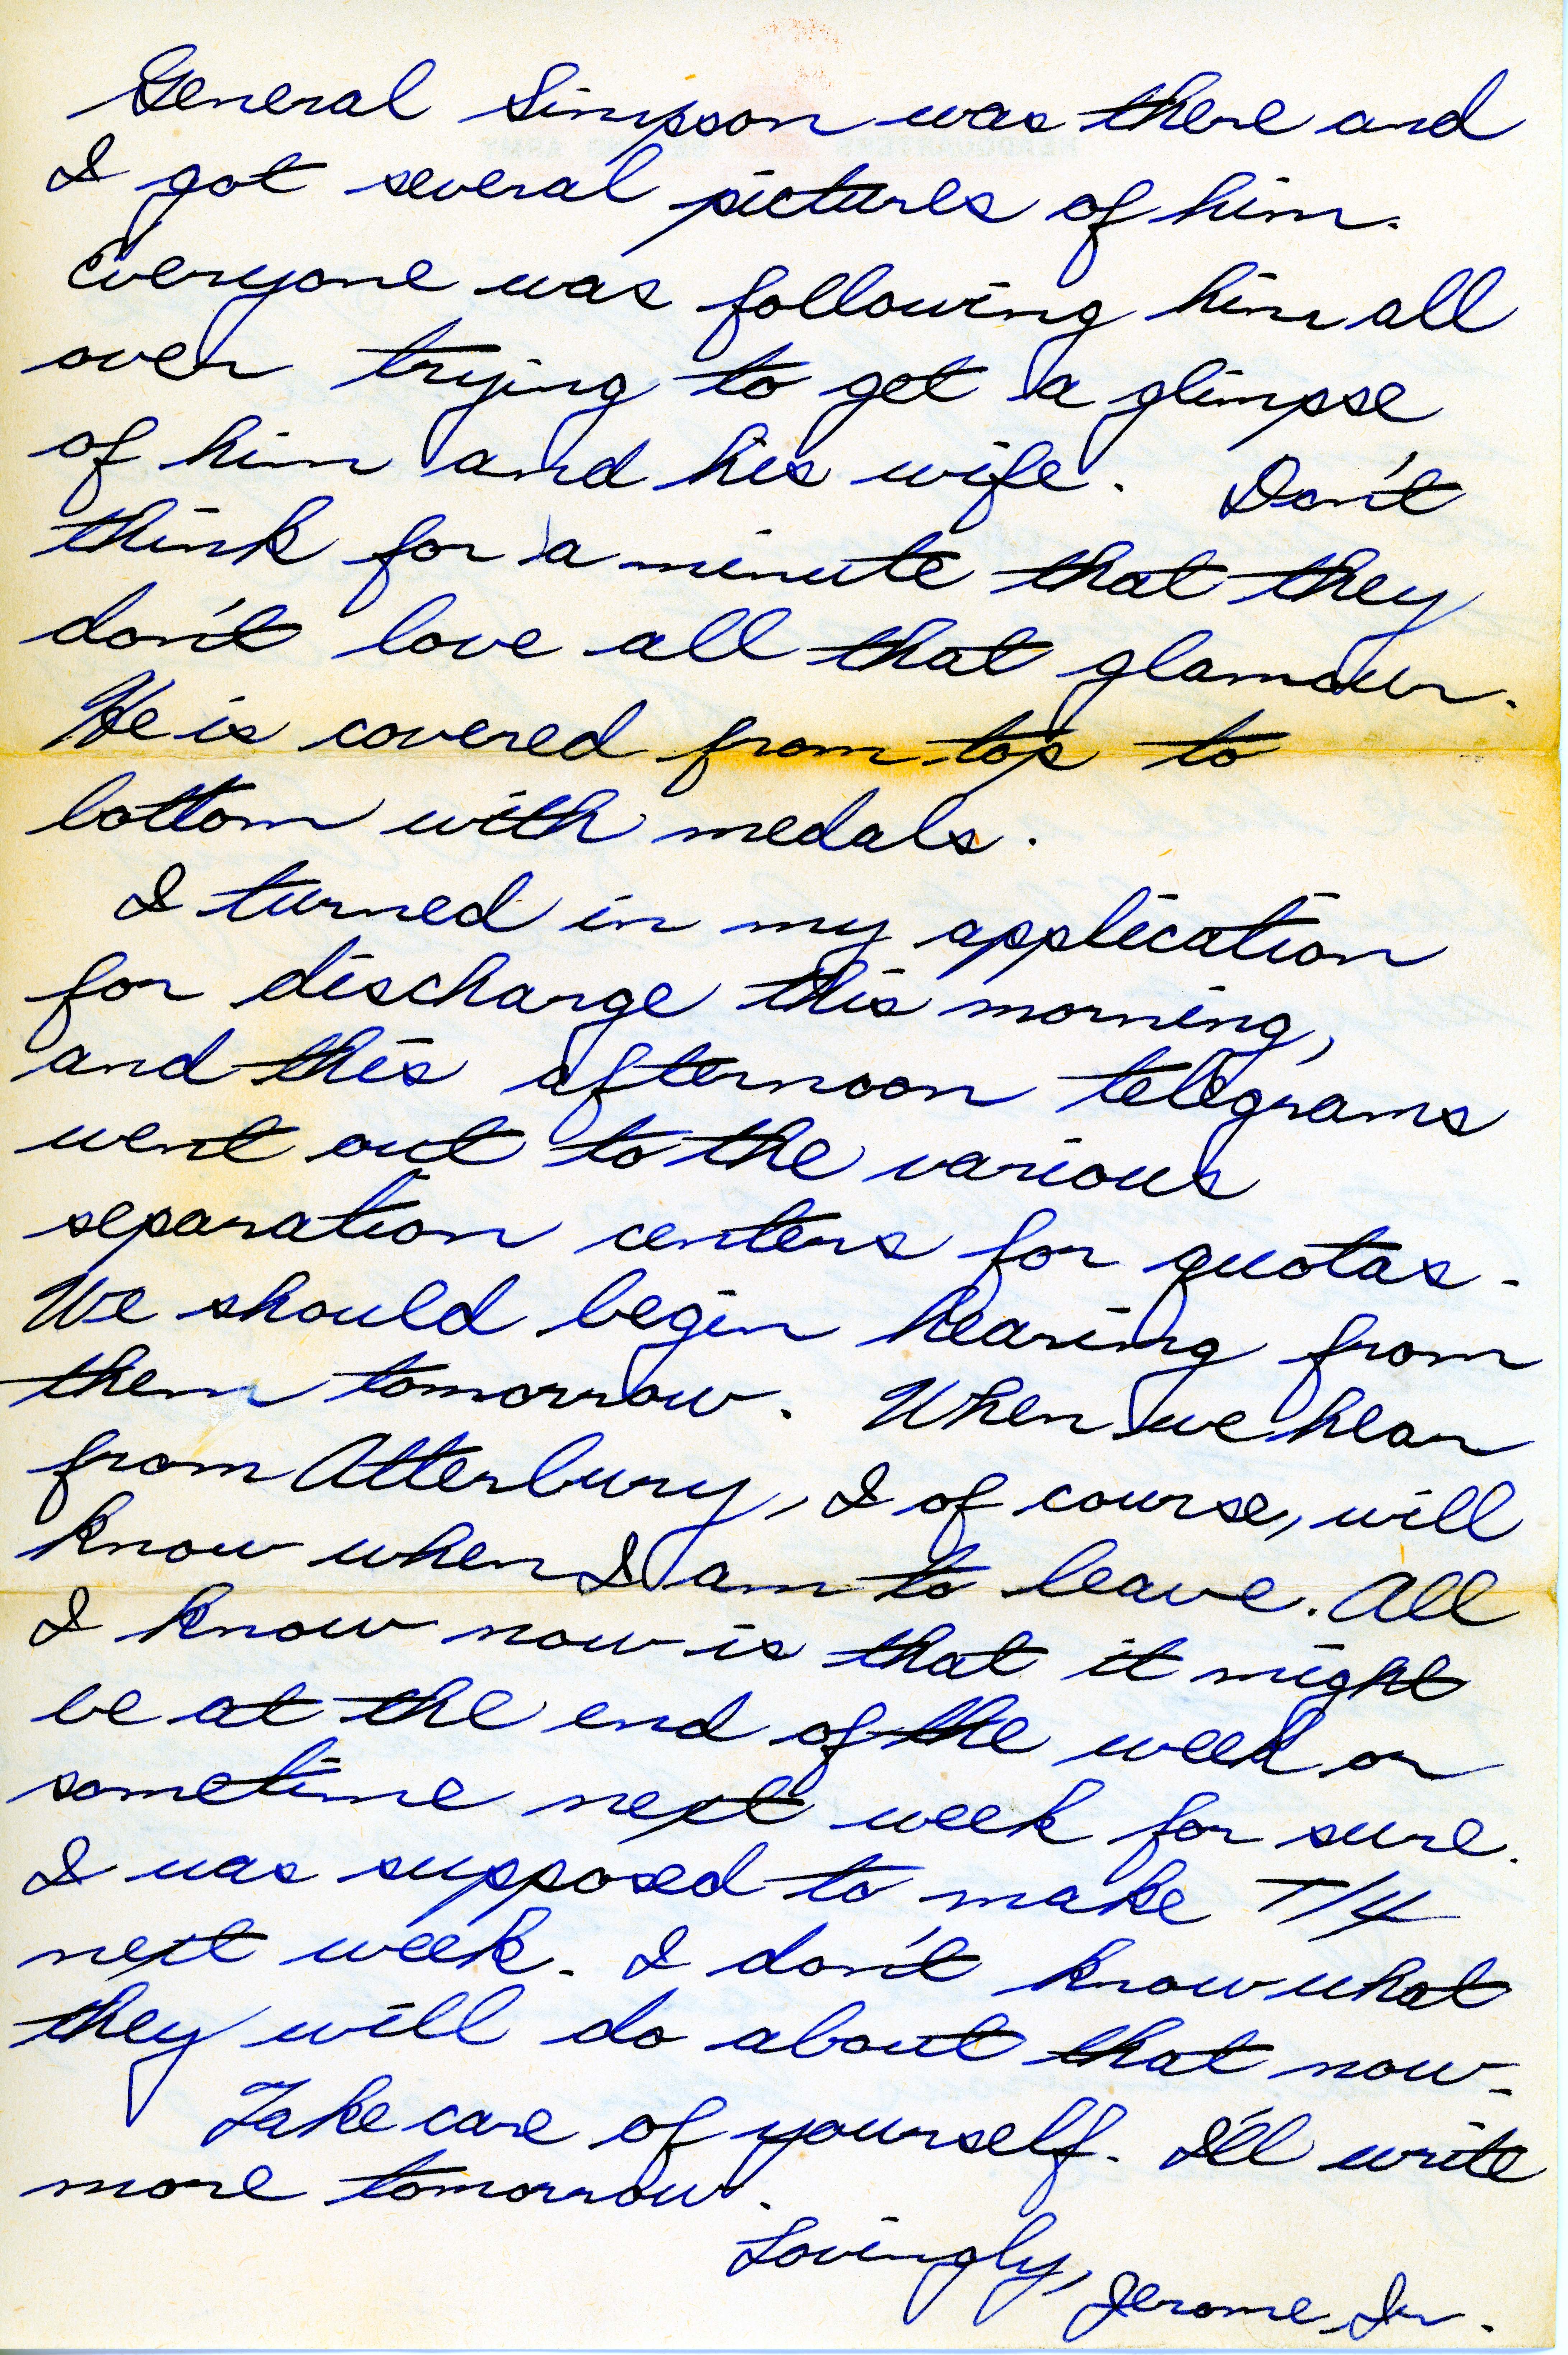 General Simpson was there and
I got several pictures of him.
Everyone was following him all
over trying to get a glimpse
of him and his wife. Don't
think for a minute that they
don't love all that glamour.
He is covered from top to
bottom with medals.
I turned in my application
for discharge this morning,
and this afternoon telegrams
went out to the various
separation centers for quotas.
We should begin hearing from
them tomorrow. When we hear
from Atterbury, I of course, will
know when I am to leave. All
I know now is that it might
be at the end of the week or
sometime next week for sure.
I was supposed to make T/4
next week. I don't know what
they will do about that now.
Take care of yourself. I'll write
more tomorrow.
Lovingly,
Jerome, Jr.